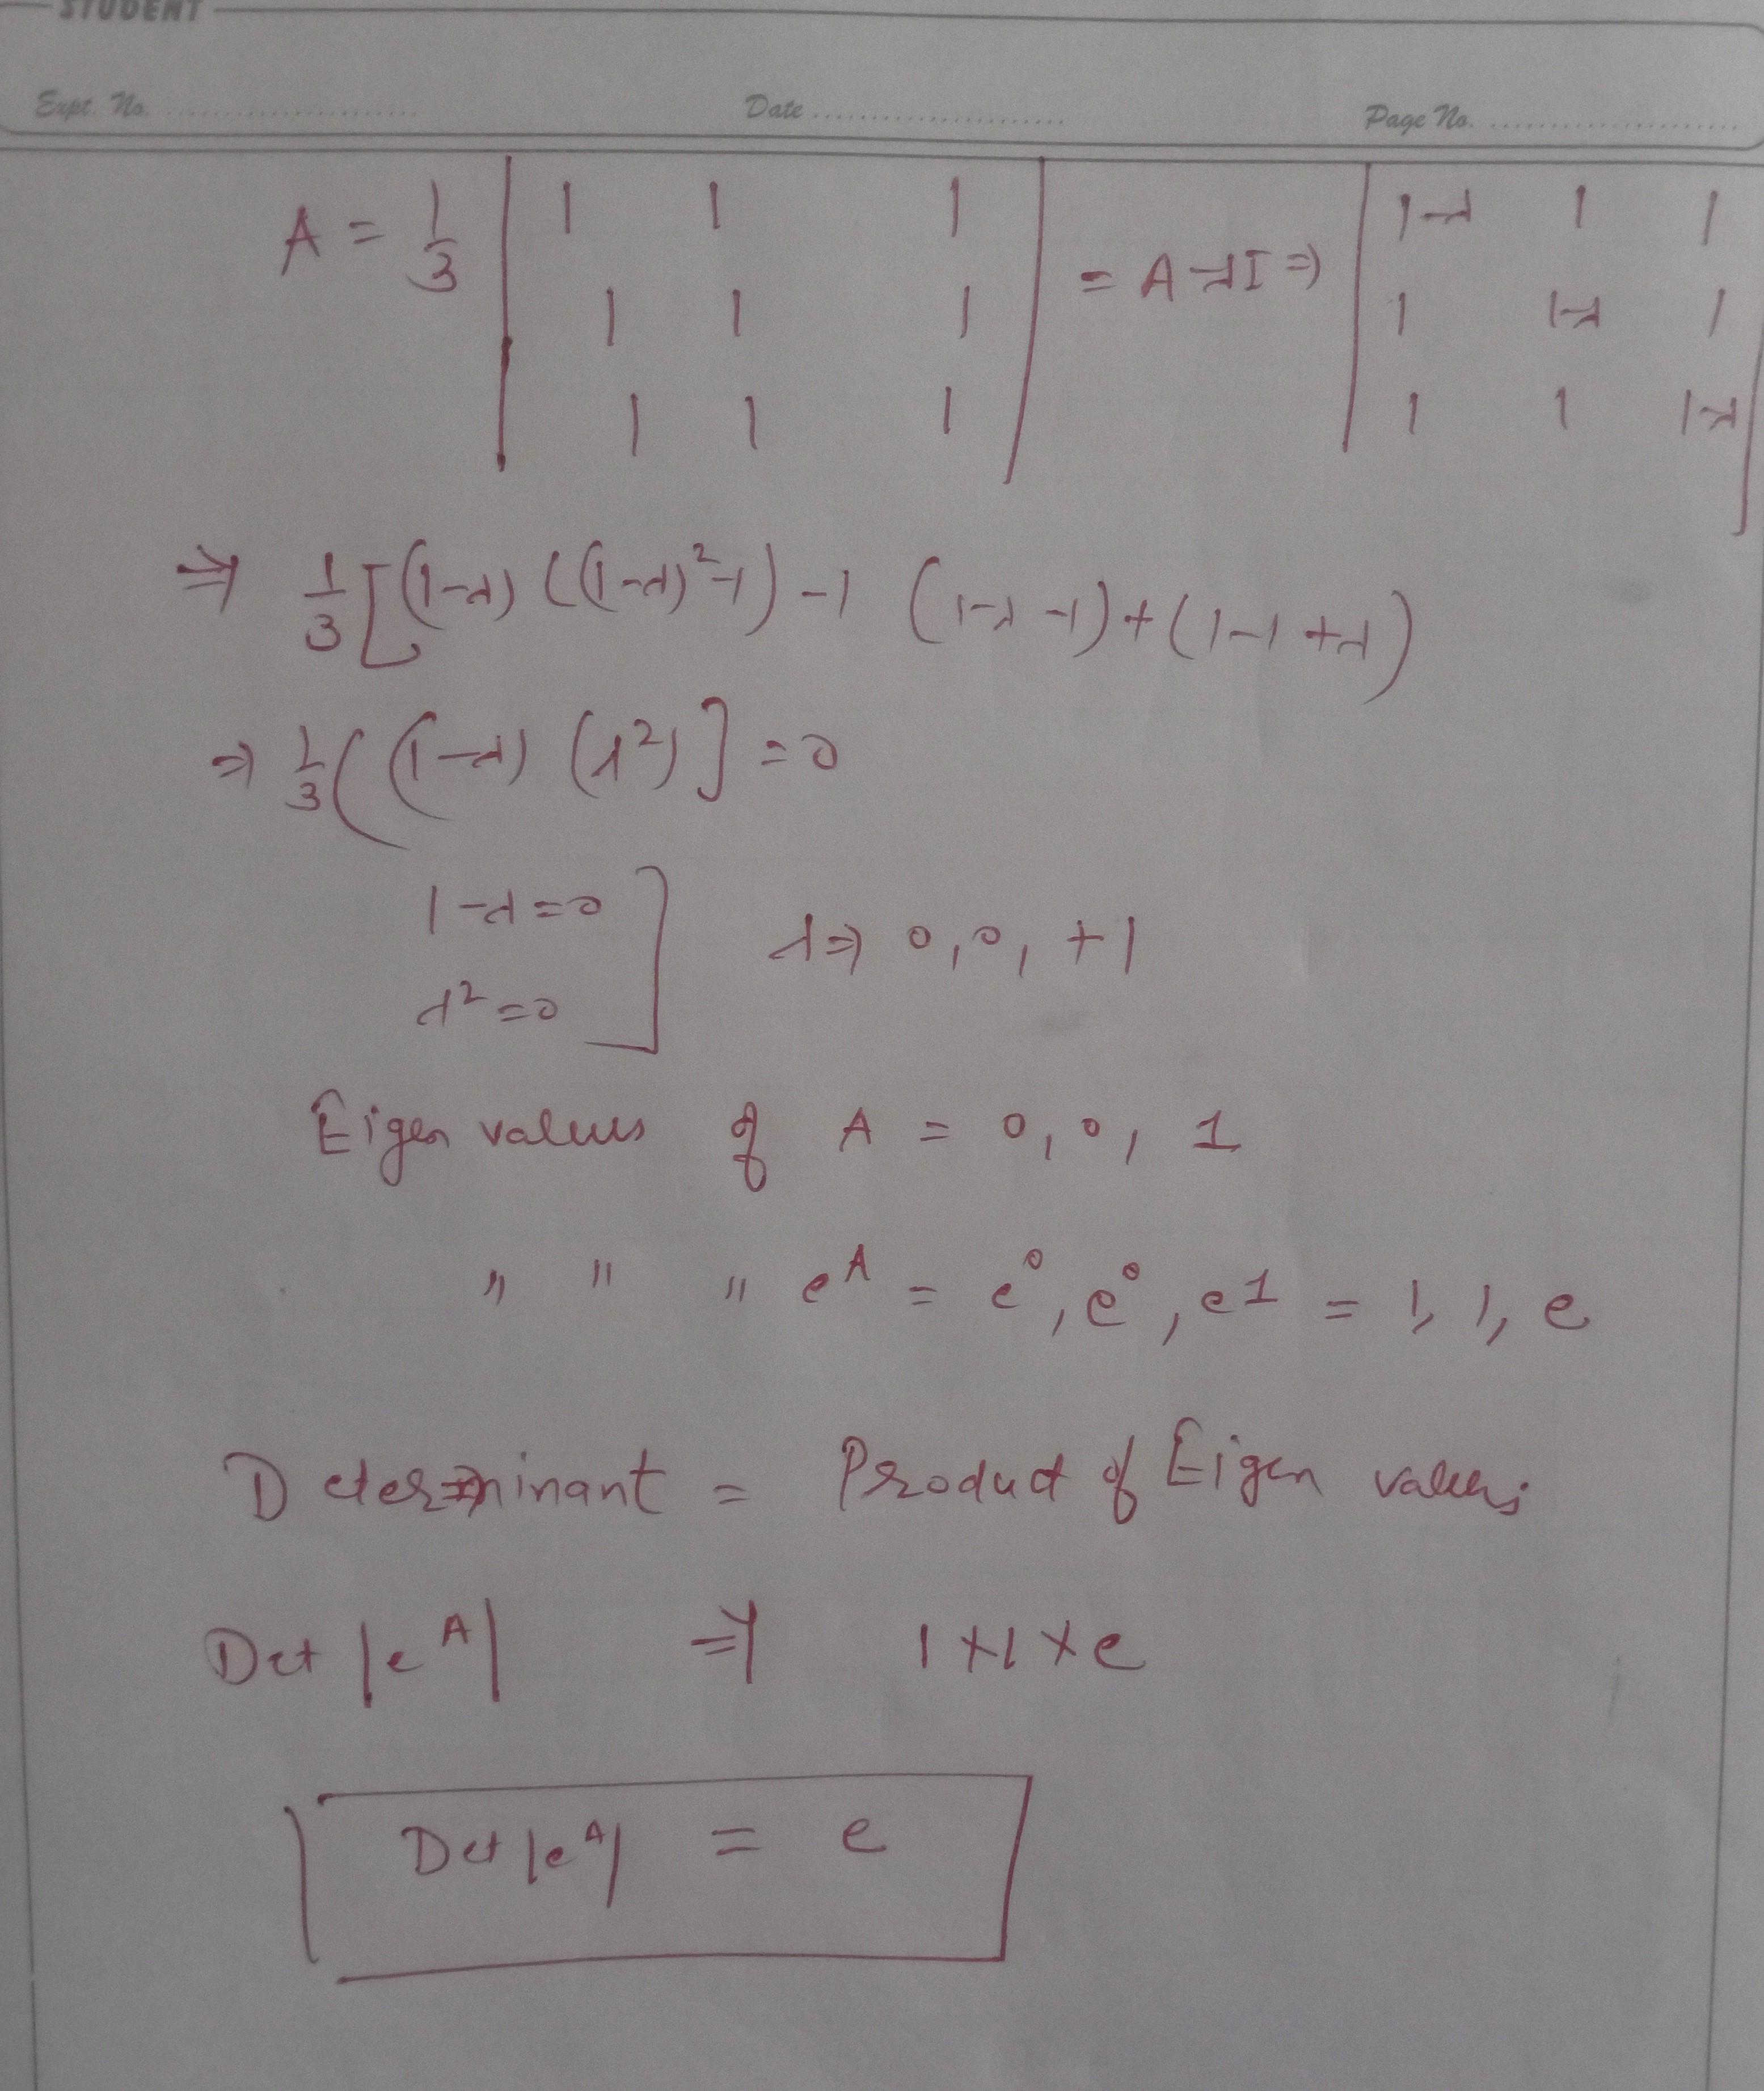 STUDENT
Expt. No. Date Page No.
A = 1/3 | 1 1 1 | = A-λI ⇒ | 1-λ 1 1
1 1 1 1 1-λ 1
1 1 1 1 1 1-λ ]
⇒ 1/3 [(1-λ) ((1-λ)²-1) -1 (1-λ-1)+(1-1+λ)
⇒ 1/3 ( (1-λ) (λ²) ] = 0
1-λ=0
λ⇒ 0,0, +1
λ²=0
Eigen values of A = 0, 0, 1
" " " e^A = e⁰, e⁰, e1 = 1, 1, e
Determinant = Product of Eigen values
Det |e^A| ⇒ 1×1×e
Det |e^A| = e